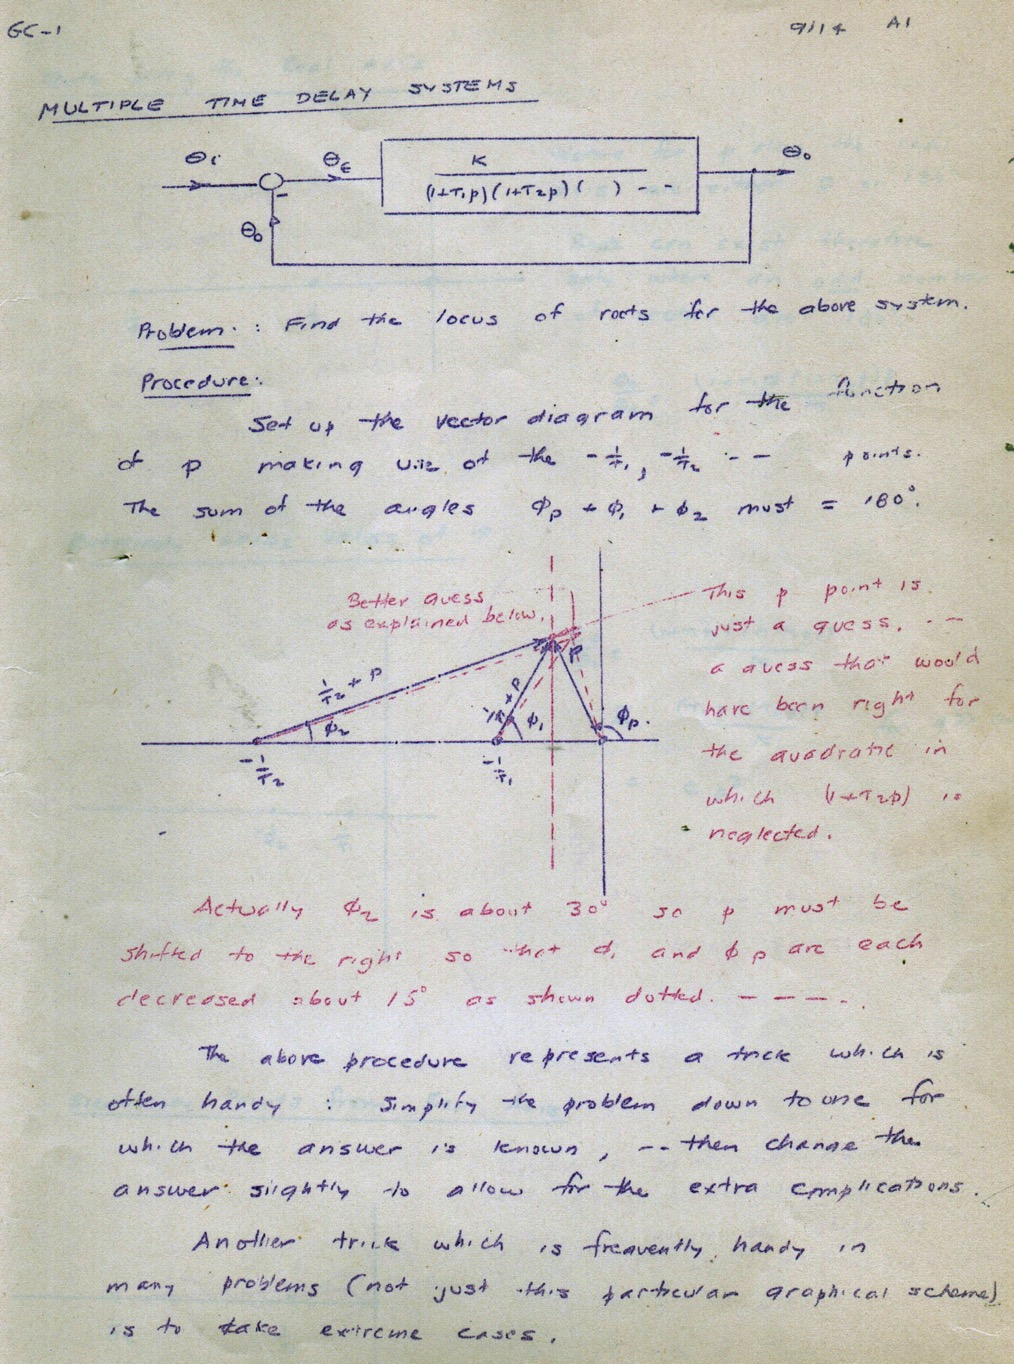 GC-1
9/14 A1
MULTIPLE TIME DELAY SYSTEMS
θi
θE
K
(1+T1p)(1+T2p)( ) - -
θo
-
θo
Problem : Find the locus of roots for the above system.
Procedure:
Set up the vector diagram for the function
of p making use of the -1/T1, -1/T2 - - - points.
The sum of the angles ϕp + ϕ1 + ϕ2 must = 180°.
Better guess
as explained below.
This p point is
just a guess. - -
a guess that would
have been right for
the quadratic in
which (1+T2p) is
neglected.
p
1/T2 + p
1/T1 + p
ϕ2
ϕ1
ϕp.
-1/T2
-1/T1
Actually ϕ2 is about 30° so p must be
shifted to the right so that ϕ1 and ϕp are each
decreased about 15° as shown dotted. - - - - .
The above procedure represents a trick which is
often handy : simplify the problem down to one for
which the answer is known, -- then change the
answer slightly to allow for the extra complications.
Another trick which is frequently handy in
many problems (not just this particular graphical scheme)
is to take extreme cases.